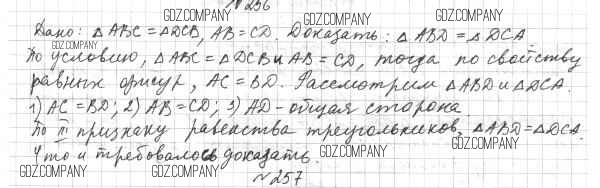 №256
Дано: △ABC=△DCB, AB=CD. Доказать: △ABD=△DCA
По условию, △ABC=△DCB и AB=CD, тогда по свойству
равных фигур, AC=BD. Рассмотрим △ABD и △DCA.
1) AC=BD; 2) AB=CD; 3) AD-общая сторона.
По III признаку равенства треугольников, △ABD=△DCA.
Что и требовалось доказать.
№257
GDZ.COMPANY
GDZ.COMPANY
GDZ.COMPANY
GDZ.COMPANY
GDZ.COMPANY
GDZ.COMPANY
GDZ.COMPANY
GDZ.COMPANY
GDZ.COMPANY
GDZ.COMPANY